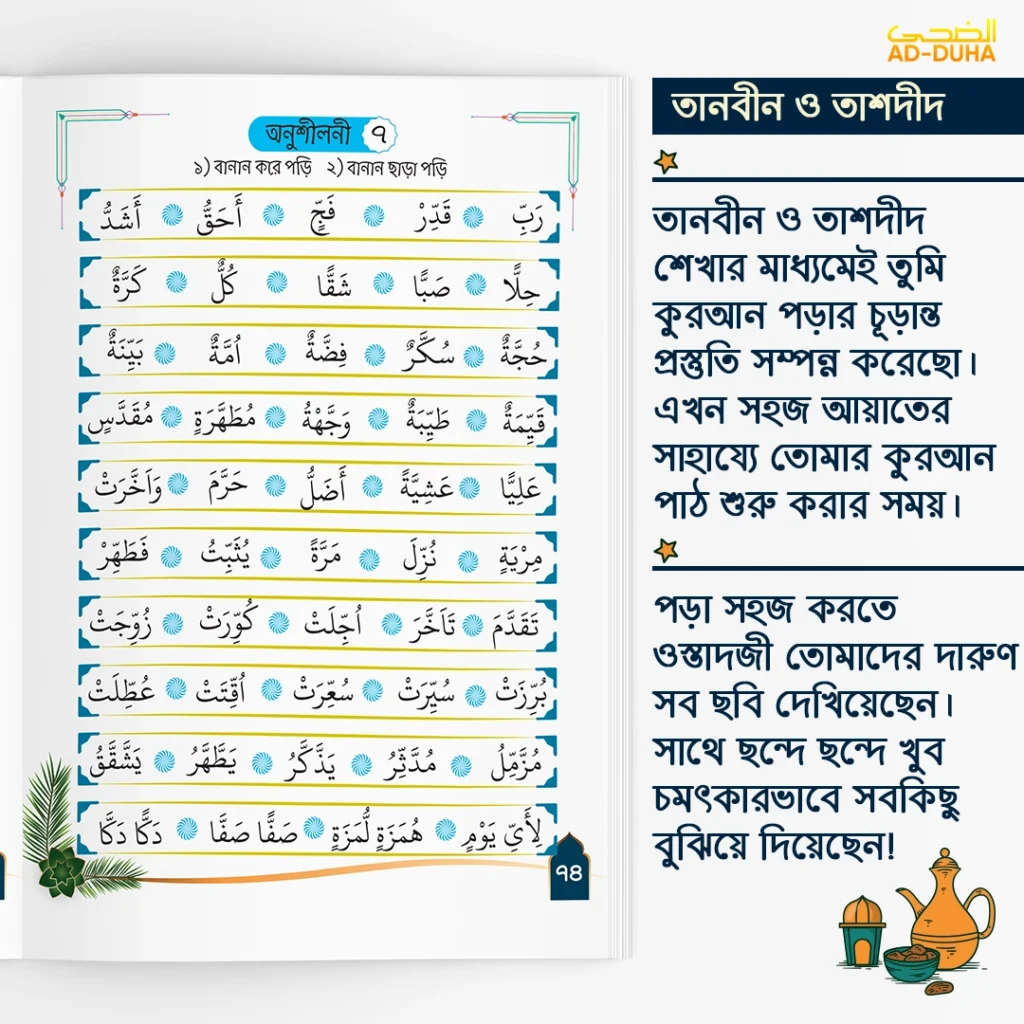 الضحى
AD-DUHA
অনুশীলনী ৭
১) বানান করে পড়ি ২) বানান ছাড়া পড়ি
رَبِّ قَدِّرْ فَجٍّ أَحَقُّ أَشَدُّ
حِلًّا صَبًّا شَقًّا كُلٌّ كَرَّةٌ
حُجَّةٌ سُكَّرٌ فِضَّةٌ اُمَّةٌ بَيِّنَةٌ
قَيِّمَةٌ طَيِّبَةٌ وَجَّهْةٌ مُطَهَّرَةٍ مُقَدَّسٍ
عَلِيًّا عَشِيَّةً أَضَلُّ حَرَّمَ وَاَخَّرَتْ
مِرْيَةٍ نُزِّلَ مَرَّةً يُثَبِّتُ فَطَهِّرْ
تَقَدَّمَ تَاَخَّرَ اُجِّلَتْ كُوِّرَتْ زُوِّجَتْ
بُرِّزَتْ سُيِّرَتْ سُعِّرَتْ اُقِّتَتْ عُطِّلَتْ
مُزَّمِّلُ مُدَّثِّرُ يَذَّكَّرُ يَطَّهَّرُ يَشَّقَّقُ
لِأَيِّ يَوْمٍ هُمَزَةٍ لُّمَزَةٍ صَفًّا صَفًّا دَكًّا دَكًّا
৭৪
তানবীন ও তাশদীদ
তানবীন ও তাশদীদ
শেখার মাধ্যমেই তুমি
কুরআন পড়ার চূড়ান্ত
প্রস্তুতি সম্পন্ন করেছো।
এখন সহজ আয়াতের
সাহায্যে তোমার কুরআন
পাঠ শুরু করার সময়।
পড়া সহজ করতে
ওস্তাদজী তোমাদের দারুণ
সব ছবি দেখিয়েছেন।
সাথে ছন্দে ছন্দে খুব
চমৎকারভাবে সবকিছু
বুঝিয়ে দিয়েছেন!